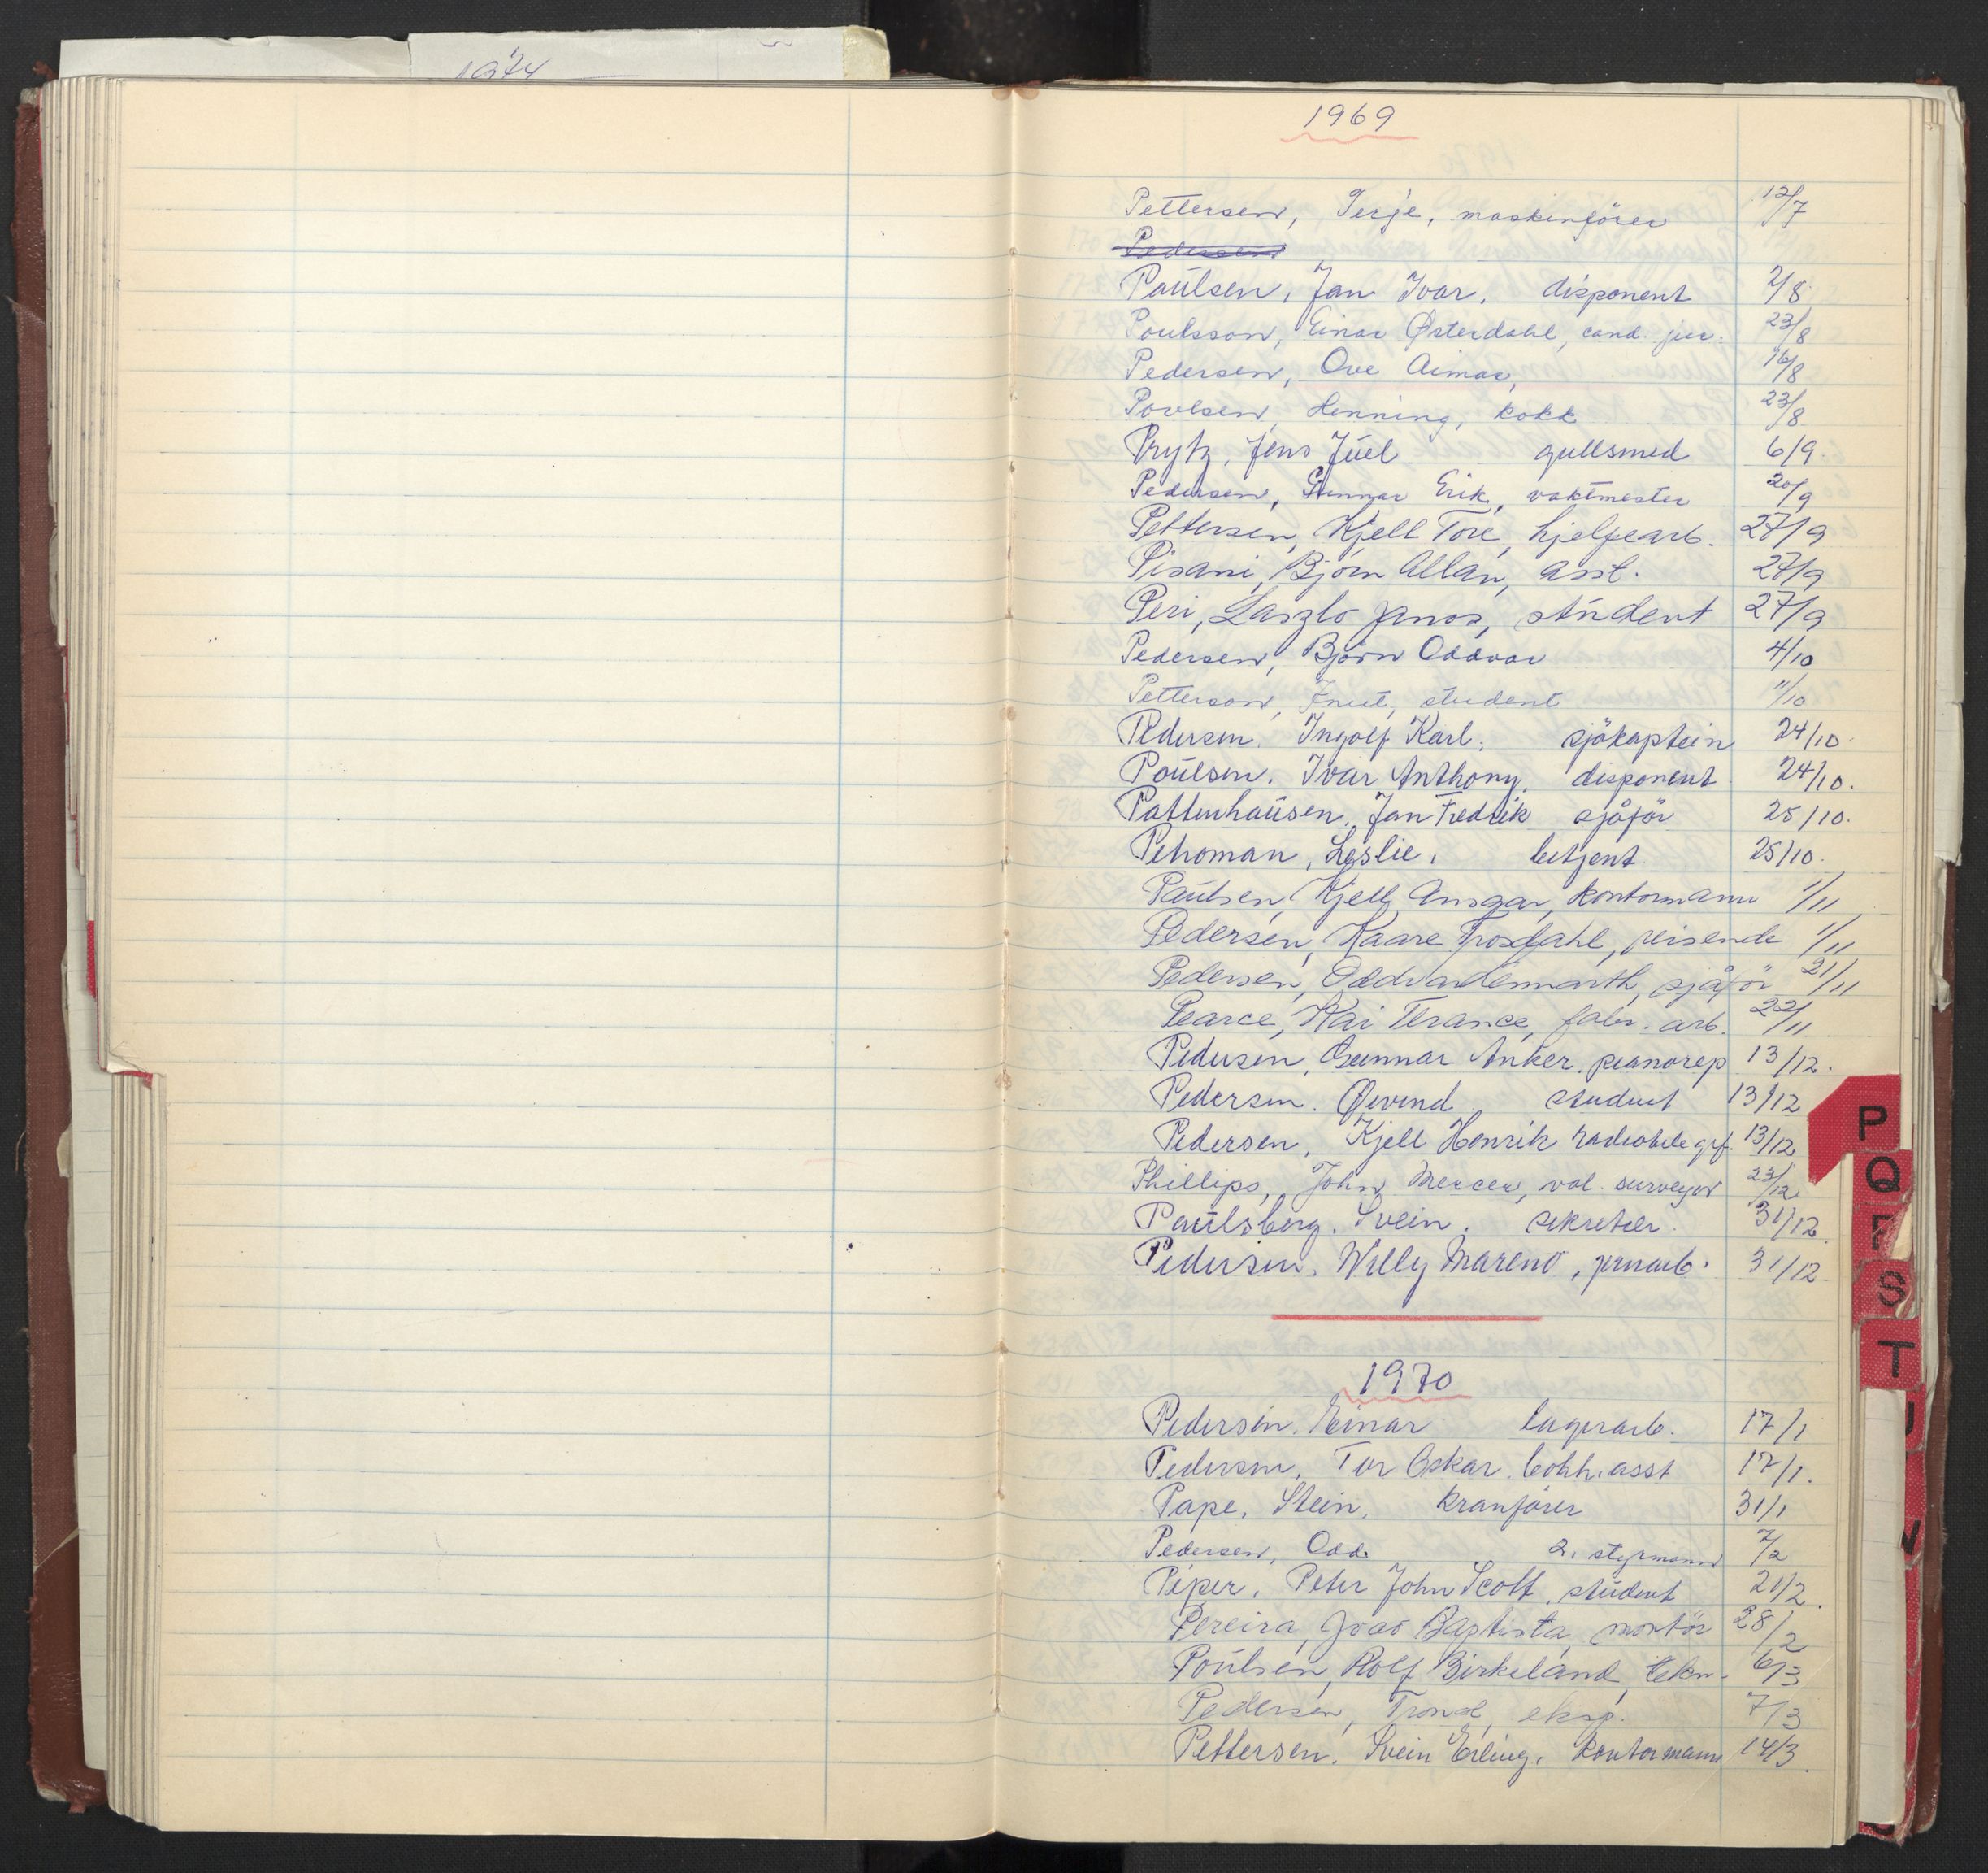 1974
1969
Pettersen, Terje, maskinförer 12/7
Pedersen
Paulsen, Jan Ivar, disponent 2/8
Poulsson, Einar Østerdahl, cand. jur. 23/8
Pedersen, Ove Aimar, 16/8
Povlsen, Henning, kokk 23/8
Prytz, Jens Juel gullsmed 6/9
Pedersen, Gunnar Erik, vaktmester 20/9
Pettersen, Kjell Tore, hjelpearb. 27/9
Pisani, Björn Allan, asst. 27/9
Peri, Laszlo Janos, student 27/9
Pedersen, Björn Oddvar 4/10
Petterson, Knut, student 11/10
Pedersen. Ingolf Karl. sjökaptein 24/10.
Poulsen. Ivar Anthony. disponent. 24/10.
Pattenhausen. Jan Fredrik sjåför 25/10.
Pehoman, Leslie. betjent 25/10.
Paulsen, Kjell Ansgar, kontormann 1/11
Pedersen, Kaare Trosdahl, reisende 1/11
Pedersen, Oddvar Lennarth, sjåför 21/11
Pearce, Kai Terance, fabr. arb. 22/11
Pedersen, Gunnar Anker. pianorep 13/12.
Pedersen. Øivind student 13/12
Pedersen, Kjell Henrik radiotelegrf. 13/12
Phillips, John Mercer, vol. surveyor 23/12
Paulsberg. Svein. sekretær. 31/12.
Pedersen. Willy Mareno, jernarb. 31/12
1970
Pedersen. Einar lagerarb. 17/1
Pedersen. Tor Oskar. bokh. asst 17/1.
Pape. Stein. kranförer 31/1
Pedersen, Odd 2. styrmann 7/2
Piper. Peter John Scott, student 21/2.
Pereira, Joao Baptista, montör 28/2
Poulsen, Rolf Birkeland, tekn. 6/3
Pedersen, Trond, eksp. 7/3
Pettersen. Svein Erling. kontormann 14/3.
P
Q
R
S
T